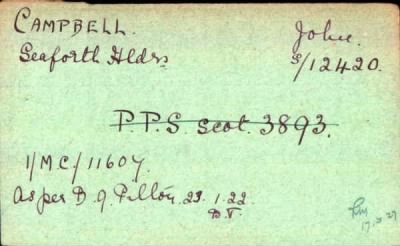 CAMPBELL. John.
Seaforth Hldrs S/12420.
P.P.S. Scot. 3893.
1/MC/11607.
As per D. of P. 23.1.22
17.3.27